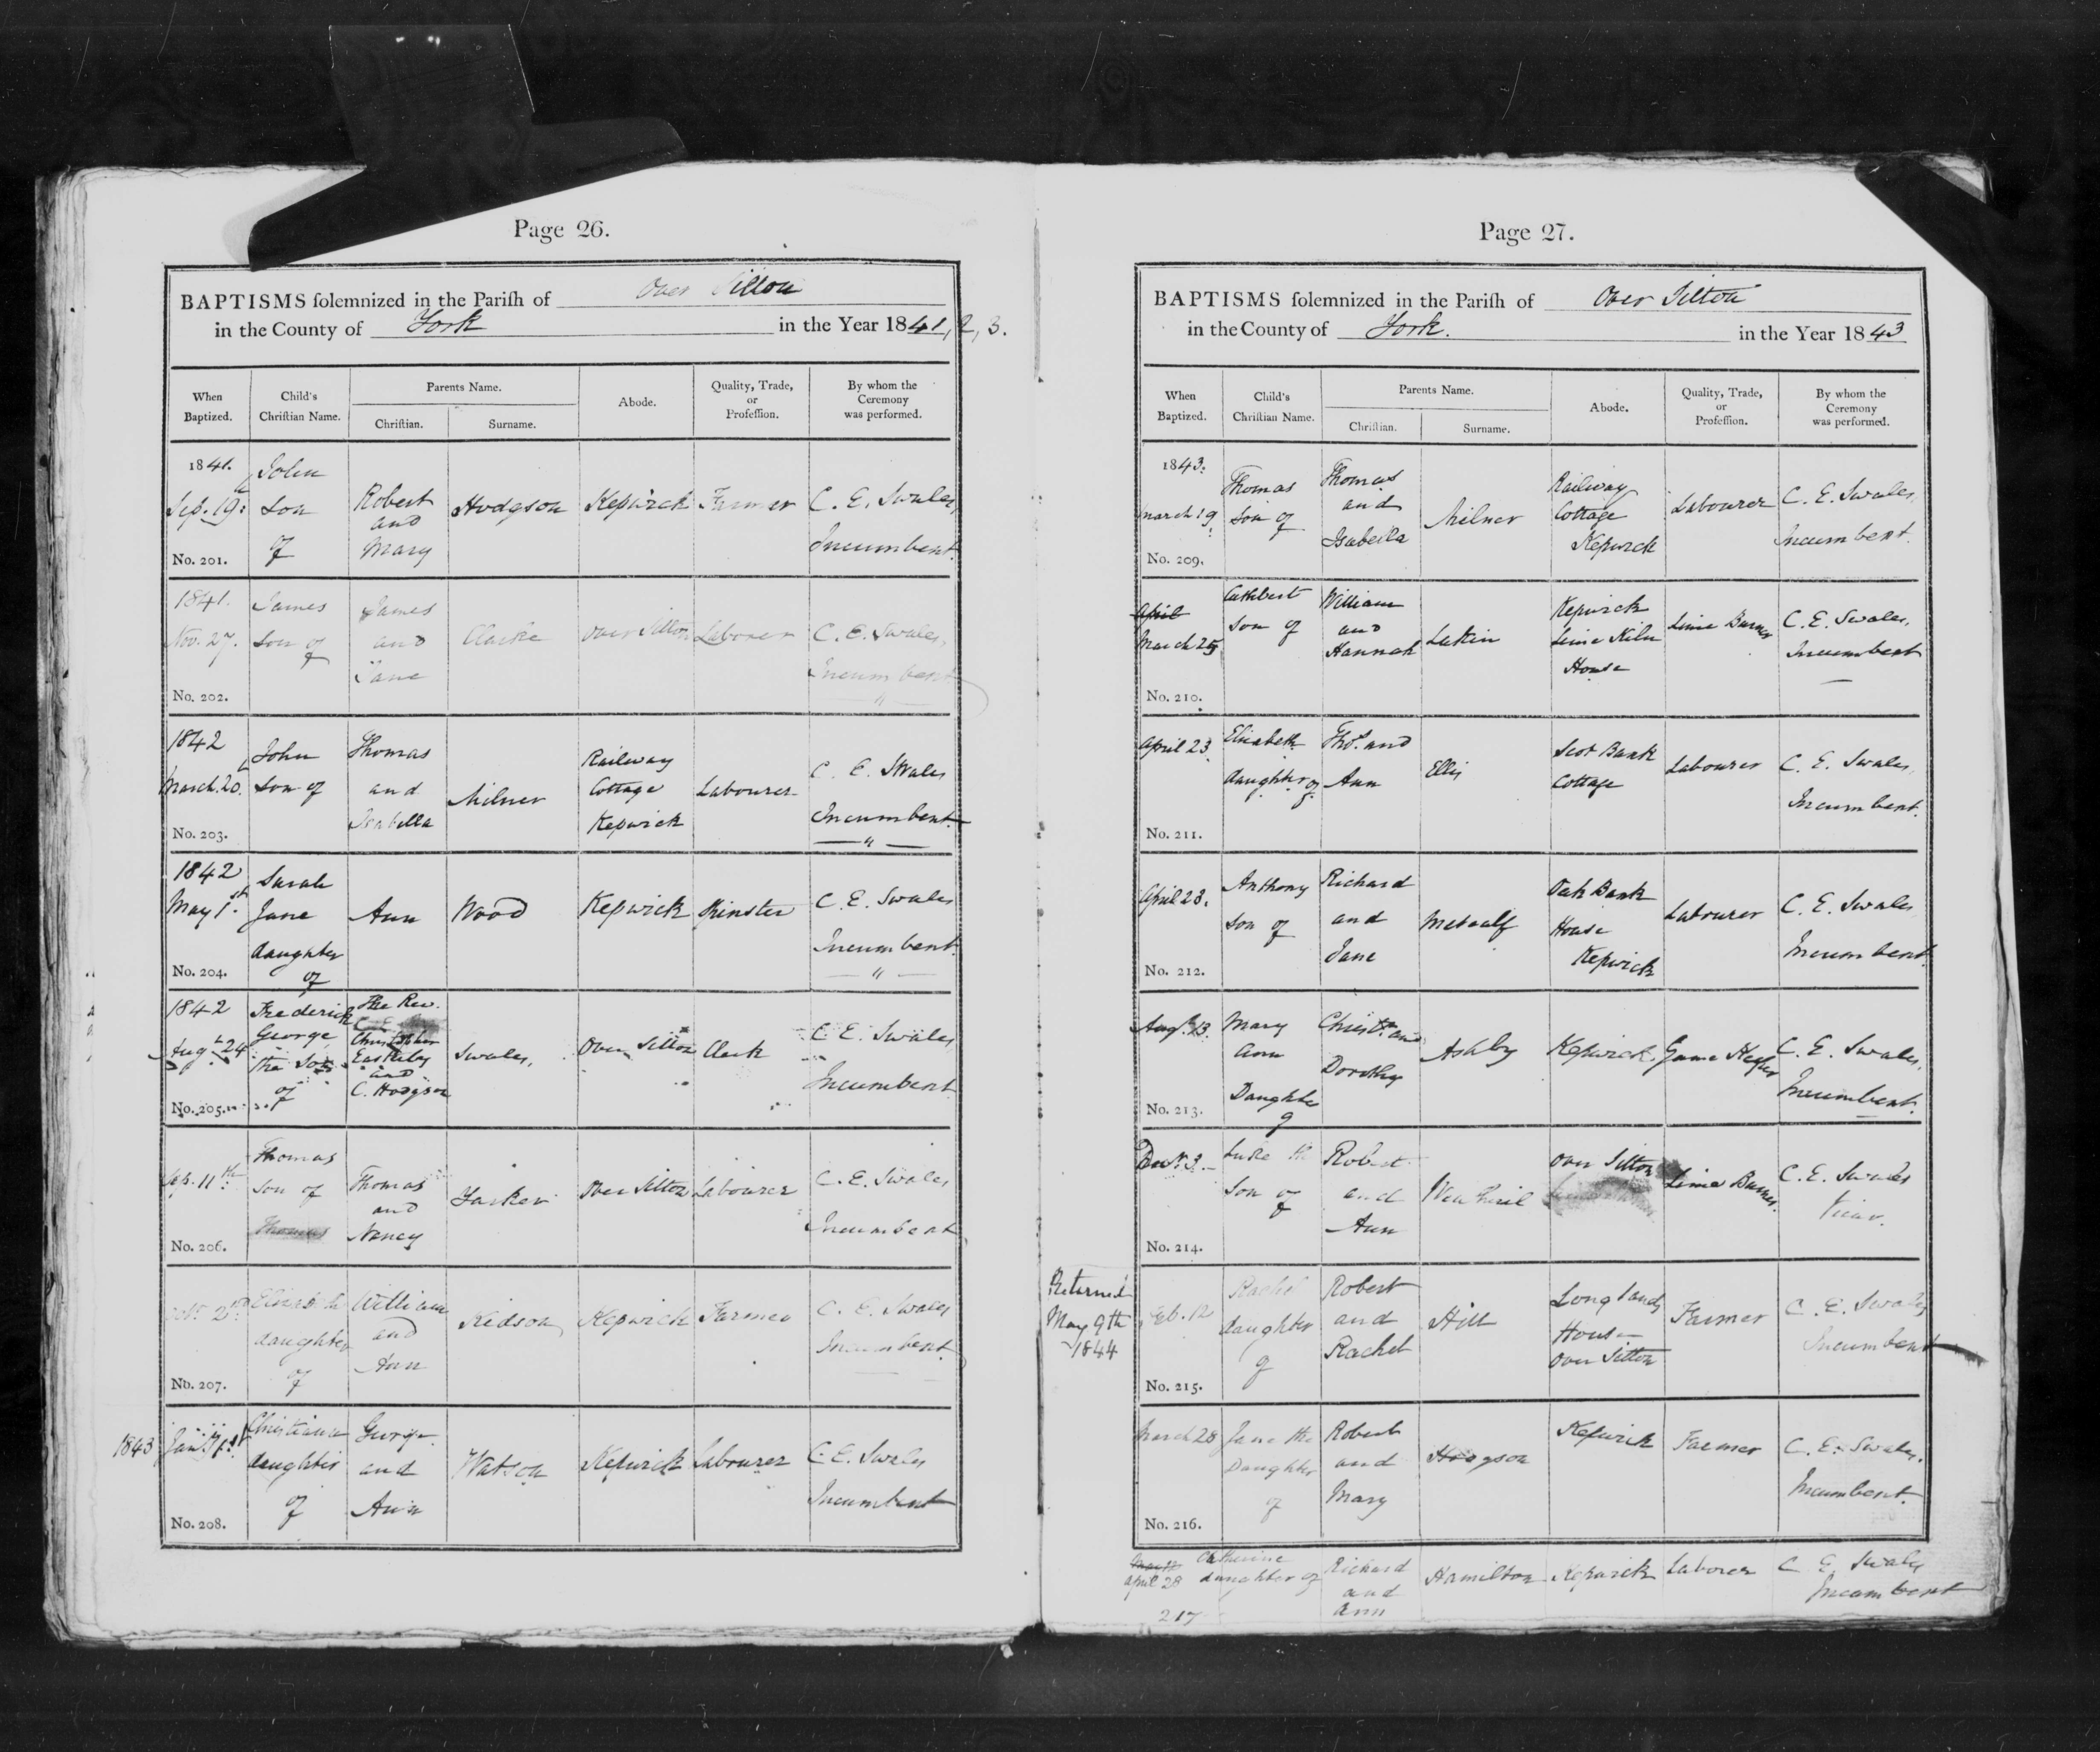 Page 26.
BAPTISMS solemnized in the Parish of Over Silton
in the County of York in the Year 1841, 2, 3.
When Baptized.
Child's Christian Name.
Parents Name.
Christian.
Surname.
Abode.
Quality, Trade, or Profession.
By whom the Ceremony was performed.
1841.
Sep. 19:
No. 201.
John
Son
of
Robert
and
Mary
Hodgson
Kepwick
Farmer
C. E. Swales,
Incumbent.
1841.
Nov. 27.
No. 202.
James
son of
James
and
Jane
Clarke
Over Silton
Laborer
C. E. Swales,
Incumbent
1842
March. 20.
No. 203.
John
Son of
Thomas
and
Isabella
Milner
Railway
Cottage
Kepwick
Labourer
C. E. Swales
Incumbent.
1842
May 1st.
No. 204.
Sarah
Jane
daughter
of
Ann
Wood
Kepwick
Spinster
C. E. Swales
Incumbent.
1842
Augt. 24
No. 205.
Frederick
George
the Son
of
The Rev.
Christopher
Easterby
and
C. Hodgson
Swales,
Over Silton
Clerk
C. E. Swales,
Incumbent
Sep. 11th.
No. 206.
Thomas
Son of
Thomas
Thomas
and
Nancy
Over Silton
Labourer
C. E. Swales
Incumbent
Octr. 2nd.
No. 207.
Elizabeth
daughter
of
William
and
Ann
Kidson
Kepwick
Farmer
C. E. Swales
Incumbent
1843
Jany. 1st
No. 208.
Christiana
daughter
of
George
and
Ann
Watson
Kepwick
Labourer
C. E. Swales
Incumbent
Page 27.
BAPTISMS solemnized in the Parish of Over Silton
in the County of York. in the Year 1843
When Baptized.
Child's Christian Name.
Parents Name.
Christian.
Surname.
Abode.
Quality, Trade, or Profession.
By whom the Ceremony was performed.
1843.
March 19.
No. 209.
Thomas
Son of
Thomas
and
Isabella
Milner
Railway
Cottage
Kepwick
Labourer
C. E. Swales,
Incumbent.
April
March 25
No. 210.
Cuthbert
son of
William
and
Hannah
Lakin
Kepwick
Lime Kiln
House
Lime Burner
C. E. Swales,
Incumbent
April 23.
No. 211.
Elizabeth
daughter of
Thos. and
Ann
Ellis
Scot Bank
Cottage
Labourer
C. E. Swales,
Incumbent.
April 23.
No. 212.
Anthony
son of
Richard
and
Jane
Metcalf
Oak Bank
House
Kepwick
Labourer
C. E. Swales
Incumbent
Augt. 13.
No. 213.
Mary
Ann
Daughter
of
Christr. and
Dorothy
Ashby
Kepwick.
Game Keeper
C. E. Swales,
Incumbent.
Decr. 3.
No. 214.
Luke the
Son of
Robert
and
Ann
Over Silton
Lime Burner.
C. E. Swales
Vicar.
Returned
May 9th
1844
Feb. 12
No. 215.
Rachel
daughter
of
Robert
and
Rachel
Hill
Longlands
House
Over Silton
Farmer
C. E. Swales
Incumbent
March 28
No. 216.
Jane the
Daughter
of
Robert
and
Mary
Hodgson
Kepwick
Farmer
C. E. Swales.
Incumbent.
April 28
217
Catherine
daughter of
Richard
and
Ann
Hamilton
Kepwick
Laborer
C E Swales
Incumbent